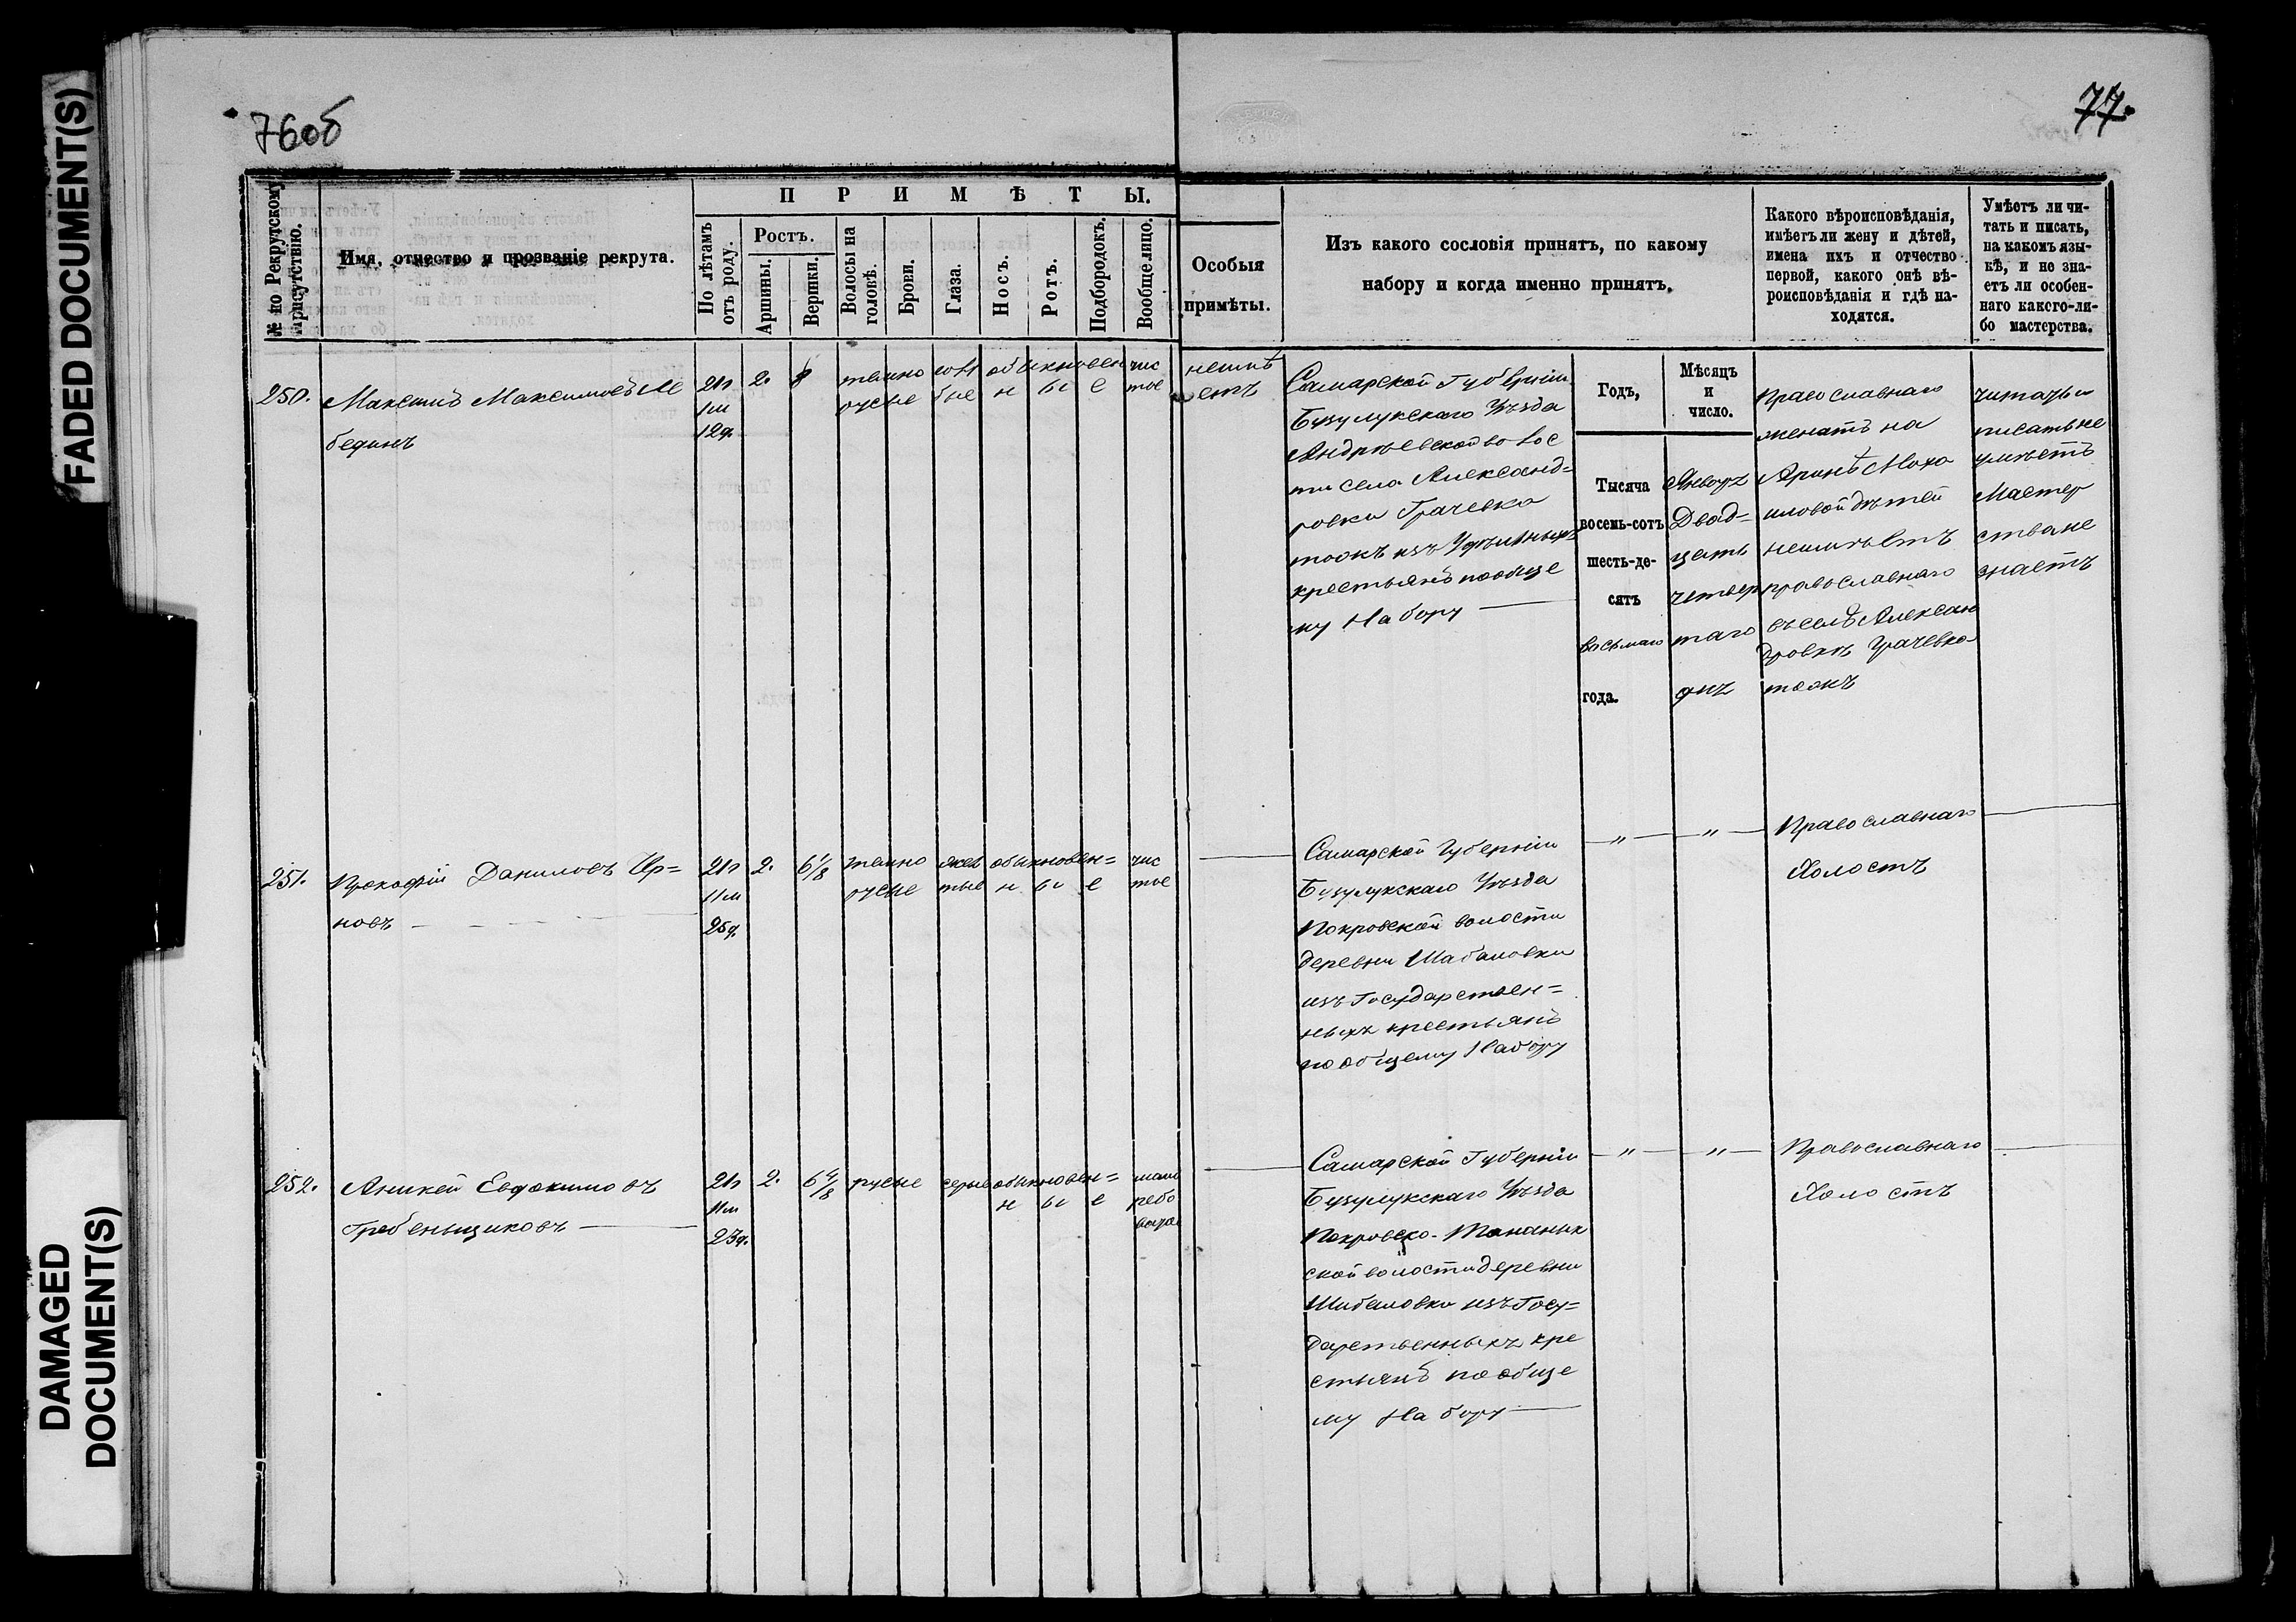 FADED DOCUMENT(S)
DAMAGED
DOCUMENT(S)
76об
77.
№ по Рекрутскому
присутствію.
Имя, отчество и прозваніе рекрута.
ПРИМѢТЫ.
По лѣтамъ
отъ роду.
Ростъ.
Аршины.
Вершки.
Волосы на
головѣ.
Брови.
Глаза.
Носъ.
Ротъ.
Подбородокъ.
Вообще лицо.
Особыя
примѣты.
Изъ какого сословія принятъ, по какому
набору и когда именно принятъ.
Какого вѣроисповѣданія,
имѣетъ ли жену и дѣтей,
имена ихъ и отчество
первой, какого онѣ вѣ-
роисповѣданія и гдѣ на-
ходятся.
Умѣетъ ли чи-
тать и писать,
на какомъ язы-
кѣ, и не зна-
етъ ли особен-
наго какого-ли-
бо мастерства.
250.
Максимъ Максимовъ Ле
бединъ
21л
1м
12д.
2.
8
темно
русые
голу
бые
обыкновен
ные
чис
тое
неимѣ
етъ
Самарской Губерніи
Бузулукскаго Уѣзда
Андреевской волос
ти села Александ=
ровки Грачевка
тожъ изъ Удѣльныхъ
крестьянъ пообще
му Набору
Годъ,
Тысяча
восемь-сотъ
шесть-де-
сятъ
восьмаго
года.
Мѣсяцъ
и
число.
Январ
Двад=
цать
четвер
таго
дня
Православнаго
женатъ на
Аринѣ
иловой дѣтей
неимѣетъ
православнаго
въ селѣ Алексан
дровкѣ Грачевка
тожъ
читать и
писать не
умѣетъ
Мастер
ства не
знаетъ
251.
Прокофій Даниловъ Чер=
новъ
21л
11м
25д.
2.
6 1/8
темно
русые
жел
тые
обыкновен=
ные
чис
тое
Самарской Губерніи
Бузулукскаго Уѣзда
Покровской волости
деревни Шабаловки
изъ Государствен=
ныхъ крестьянъ
по общему Набору
"
"
Православнаго
Холостъ
252.
Аникей Евдокимовъ
Гребеньщиковъ
21л
11м
23д.
2.
6 4/8
русые
серые
обыкновен=
ные
Самарской Губерніи
Бузулукскаго Уѣзда
Покровско-Тананык
ской волости деревни
Шабаловки изъ Госу=
дарственныхъ кре
стьянъ пообще
му Набору
"
"
Православнаго
Холостъ